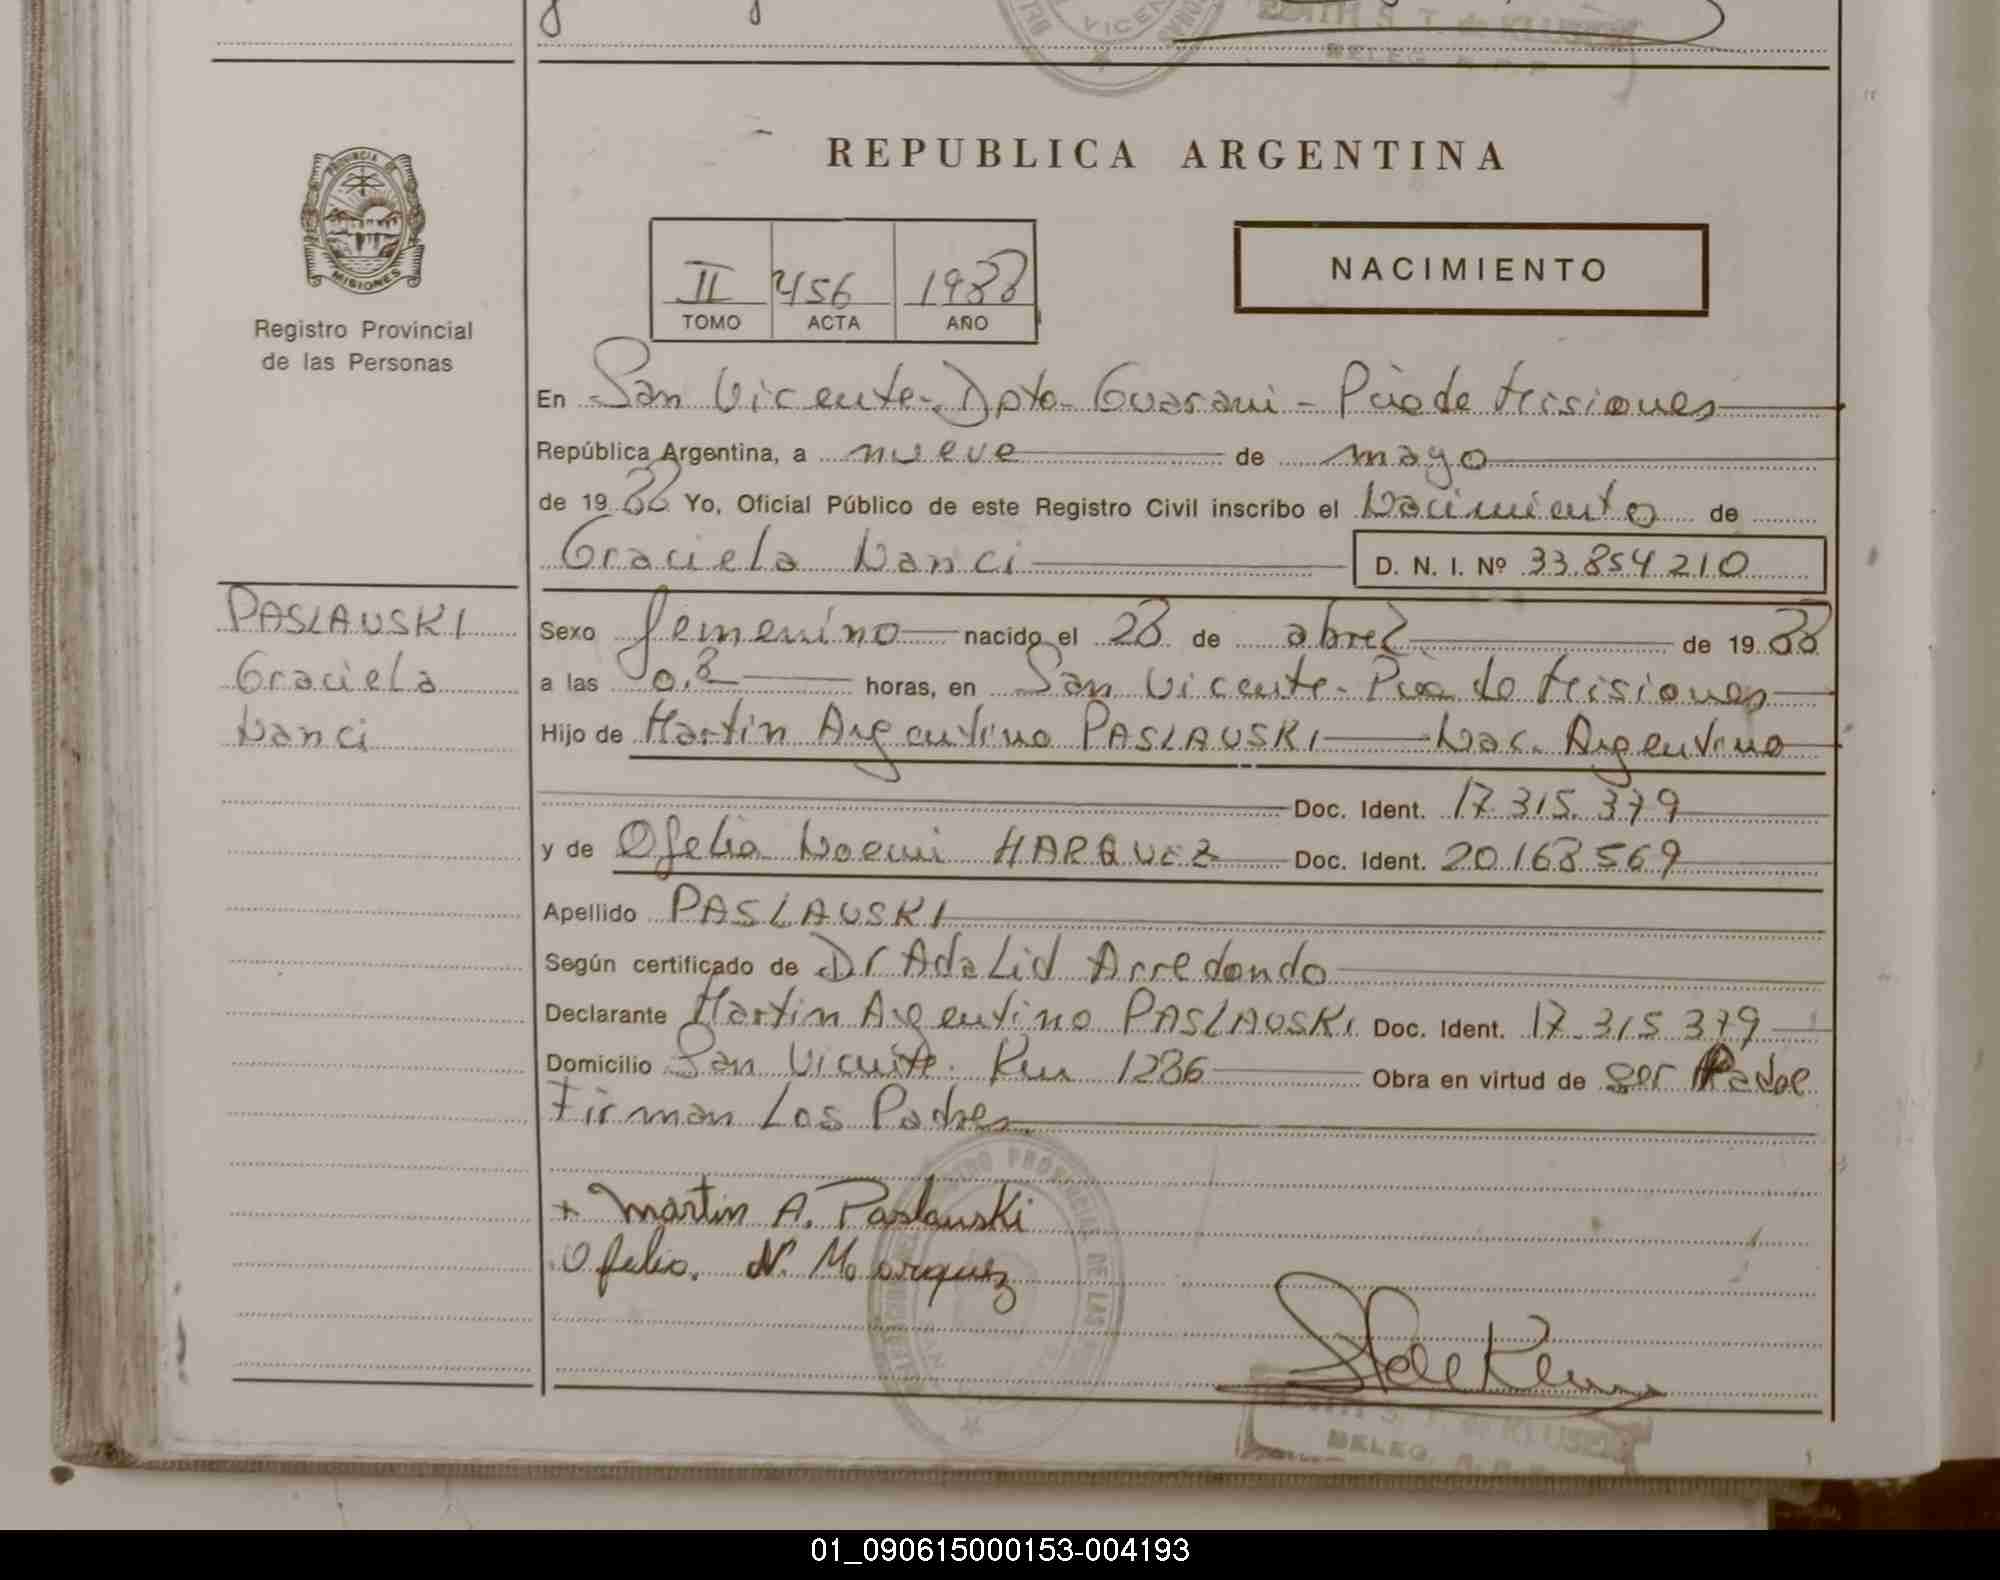 VICENTE
EDITH S. T. de KLUSENER
DELEG. R. P. P.
REPUBLICA ARGENTINA
PROVINCIA DE
MISIONES
Registro Provincial
de las Personas
II 456 1988
TOMO ACTA AÑO
NACIMIENTO
En San Vicente - Dpto Guarani - Pcia de Misiones
República Argentina, a nueve de mayo
de 1988 Yo, Oficial Público de este Registro Civil inscribo el Nacimiento de
Graciela Nanci D. N. I. Nº 33.854.210
PASLAUSKI
Graciela
Nanci
Sexo femenino nacido el 28 de abril de 1988
a las 0,8 horas, en San Vicente - Pcia de Misiones
Hijo de Martin Argentino PASLAUSKI Nac. Argentino
Doc. Ident. 17.315.379
y de Ofelia Noemi MARQUEZ Doc. Ident. 20.168.569
Apellido PASLAUSKI
Según certificado de Dr Adalid Arredondo
Declarante Martin Argentino PASLAUSKI Doc. Ident. 17.315.379
Domicilio San Vicente. Km 1286 Obra en virtud de ser Padre
Firman Los Padres
+ Martin A. Paslauski
Ofelia. N. Marquez
EDITH S. T. de KLUSENER
DELEG. R. P. P.
01_090615000153-004193